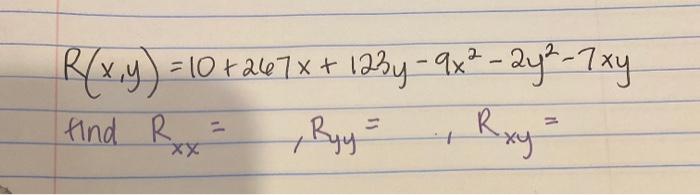 R(x,y) = 10 + 267x + 123y - 9x² - 2y² - 7xy
find R_xx = , R_yy = , R_xy =